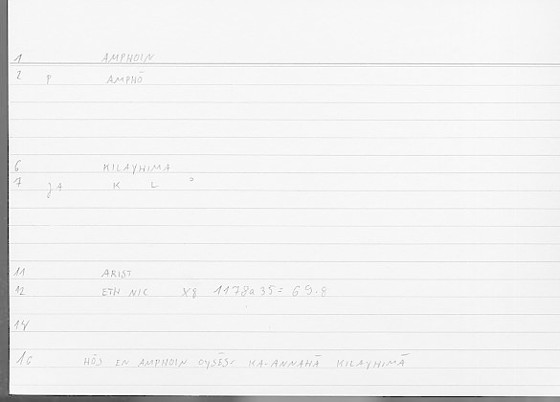 1 AMPHOIN
2 P AMPHŌ
6 KILAYHIMA
7 JA K L
11 ARIST
12 ETH NIC X8 1178a35 = 69.8
14
16 HŌS EN AMPHOIN OYSĒS, KA-ANNAHĀ KILAYHIMĀ